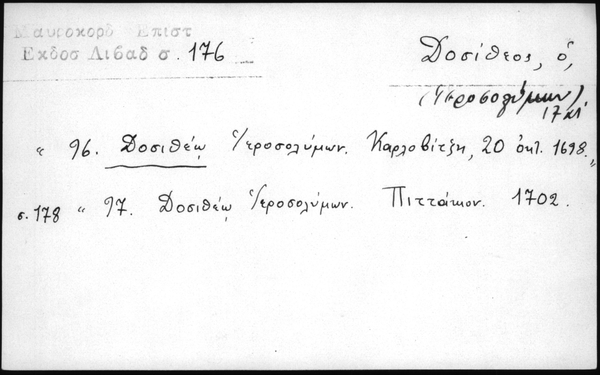 Μαυροκορδ Επιστ
Εκδοσ Λιβαδ σ. 176
Δοσίθεος, ὁ,
(Ἱεροσολύμων)
17 αἰ.
" 96. Δοσιθέῳ Ἱεροσολύμων. Καρλοβίτζῃ, 20 ὀκτ. 1698."
σ. 178 " 97. Δοσιθέῳ Ἱεροσολύμων. Πιττάκιον. 1702.